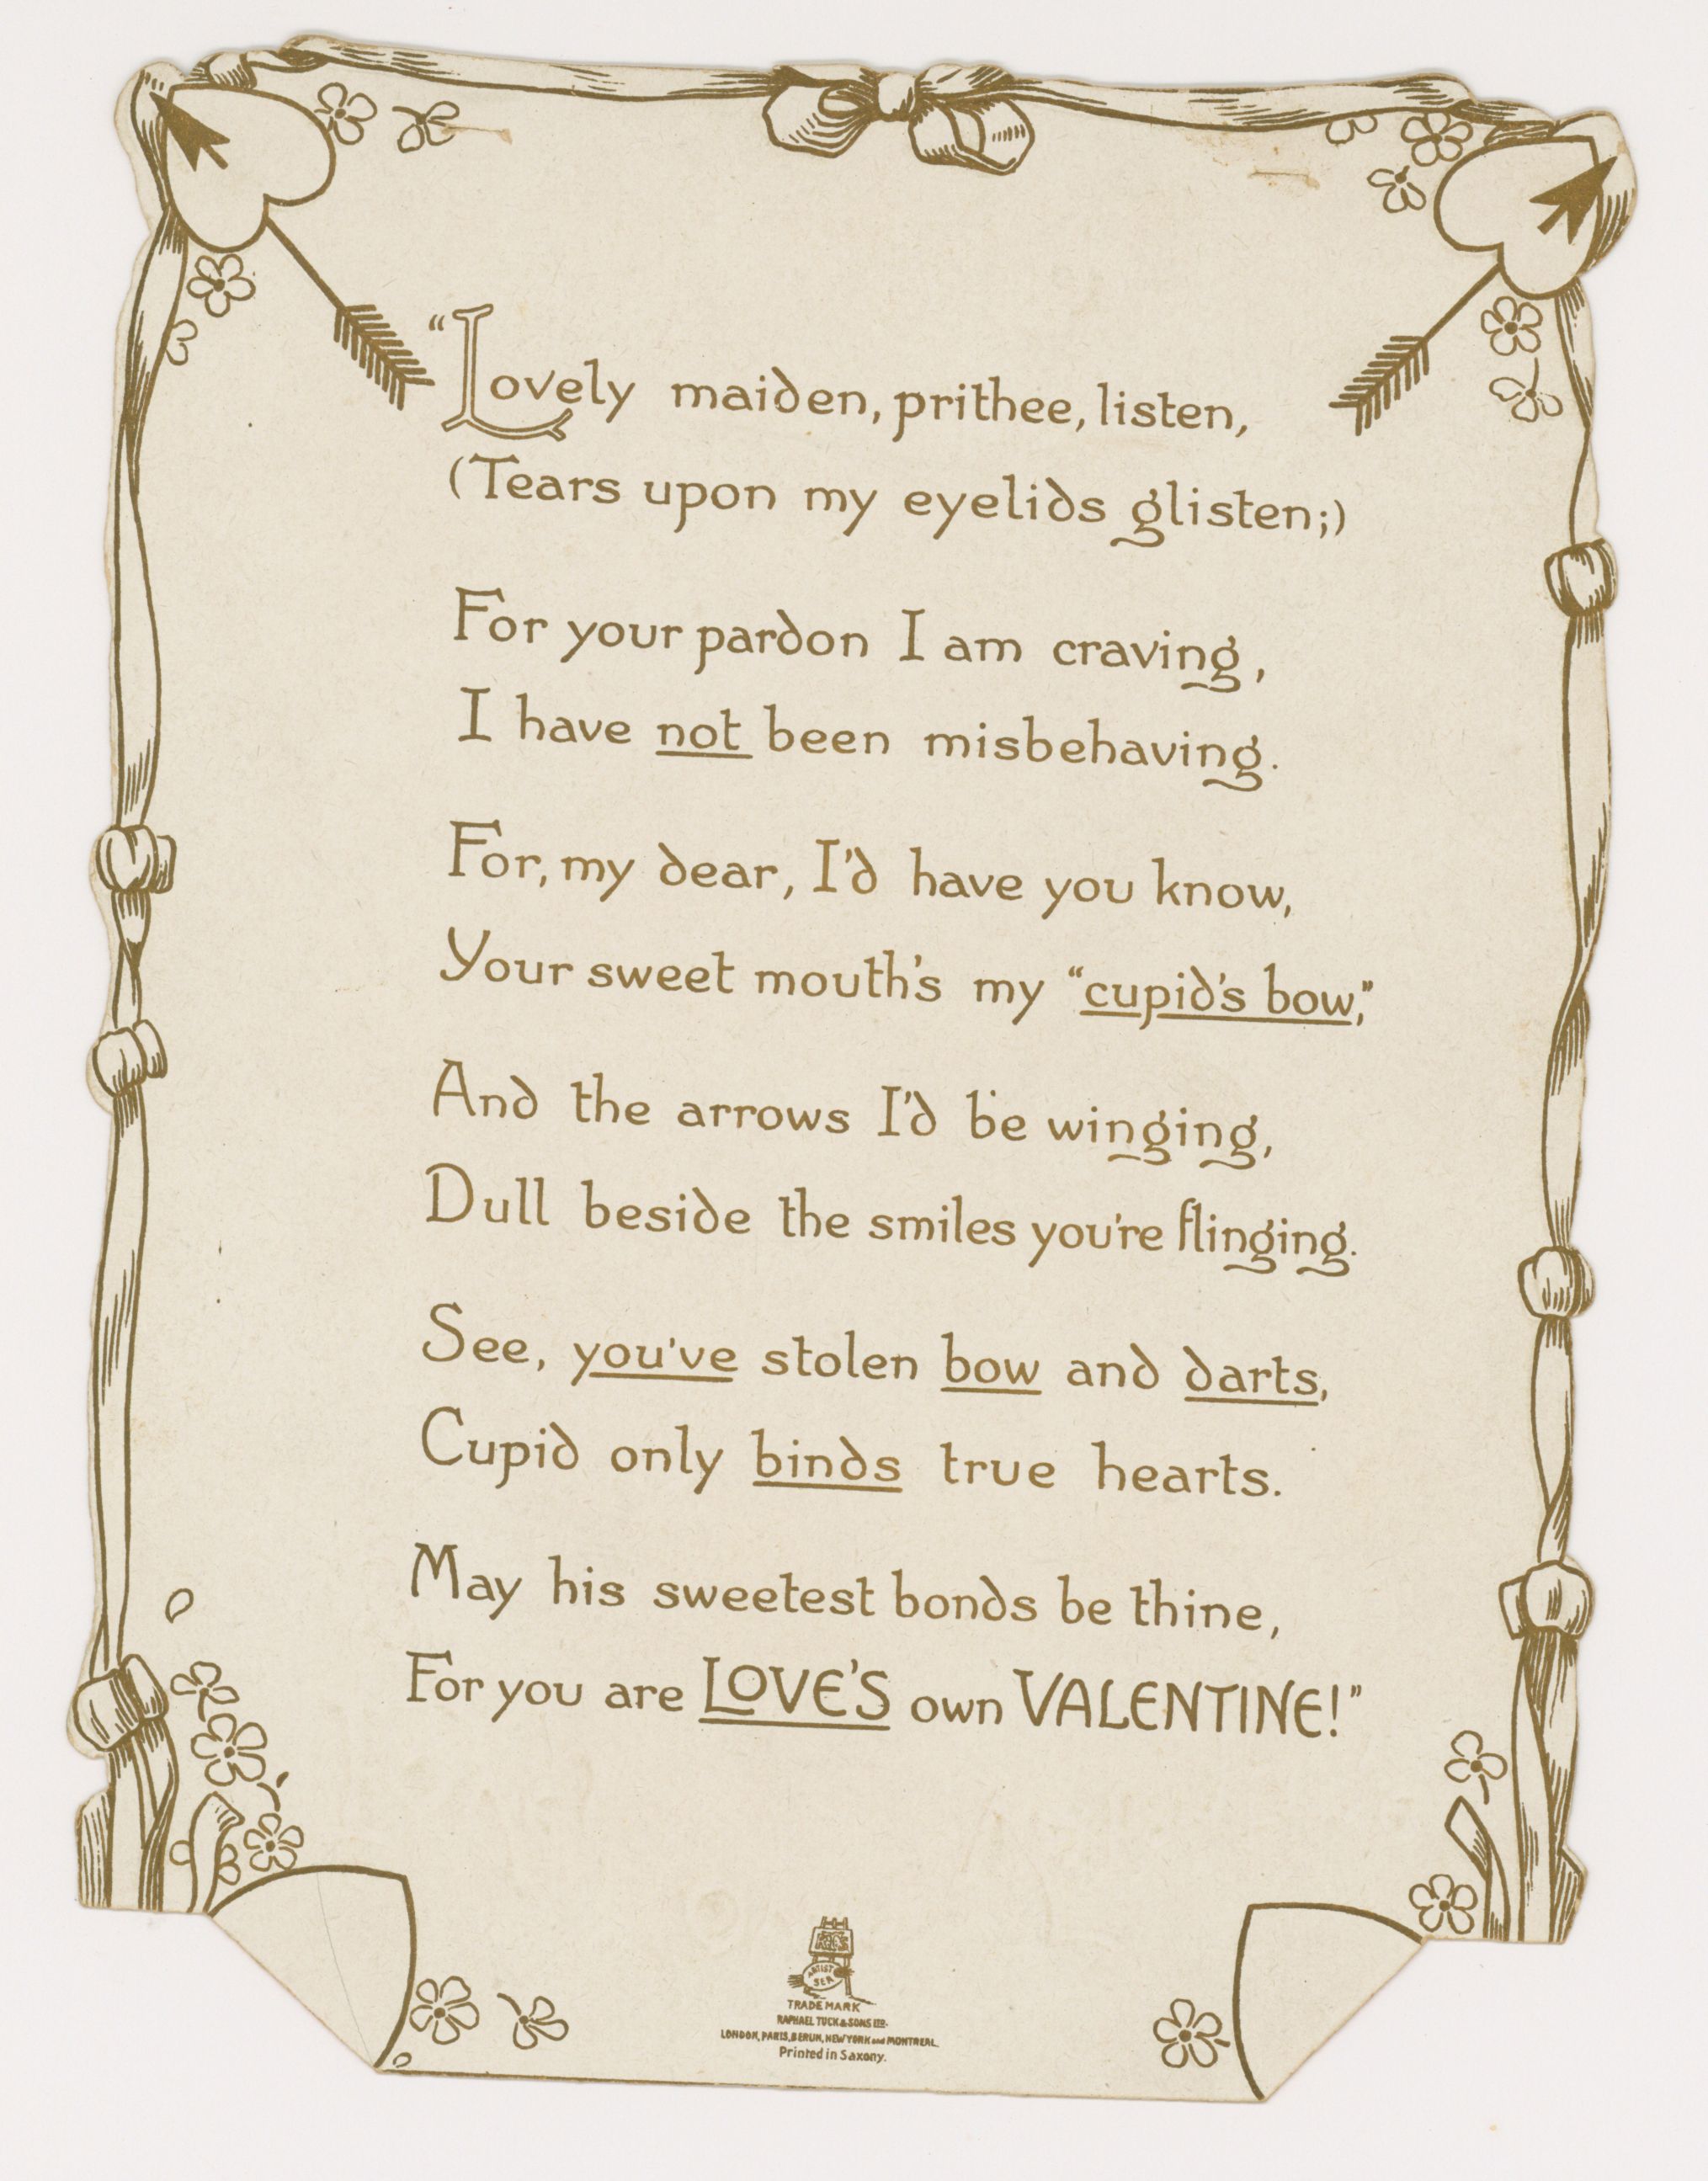 “Lovely maiden, prithee, listen,
(Tears upon my eyelids glisten;)
For your pardon I am craving,
I have not been misbehaving.
For, my dear, I'd have you know,
Your sweet mouth's my “cupid's bow,”
And the arrows I'd be winging,
Dull beside the smiles you're flinging.
See, you've stolen bow and darts,
Cupid only binds true hearts.
May his sweetest bonds be thine,
For you are LOVE'S own VALENTINE!”
ARTIST
SER
TRADE MARK
RAPHAEL TUCK & SONS LTD.
LONDON, PARIS, BERLIN, NEW YORK and MONTREAL.
Printed in Saxony.